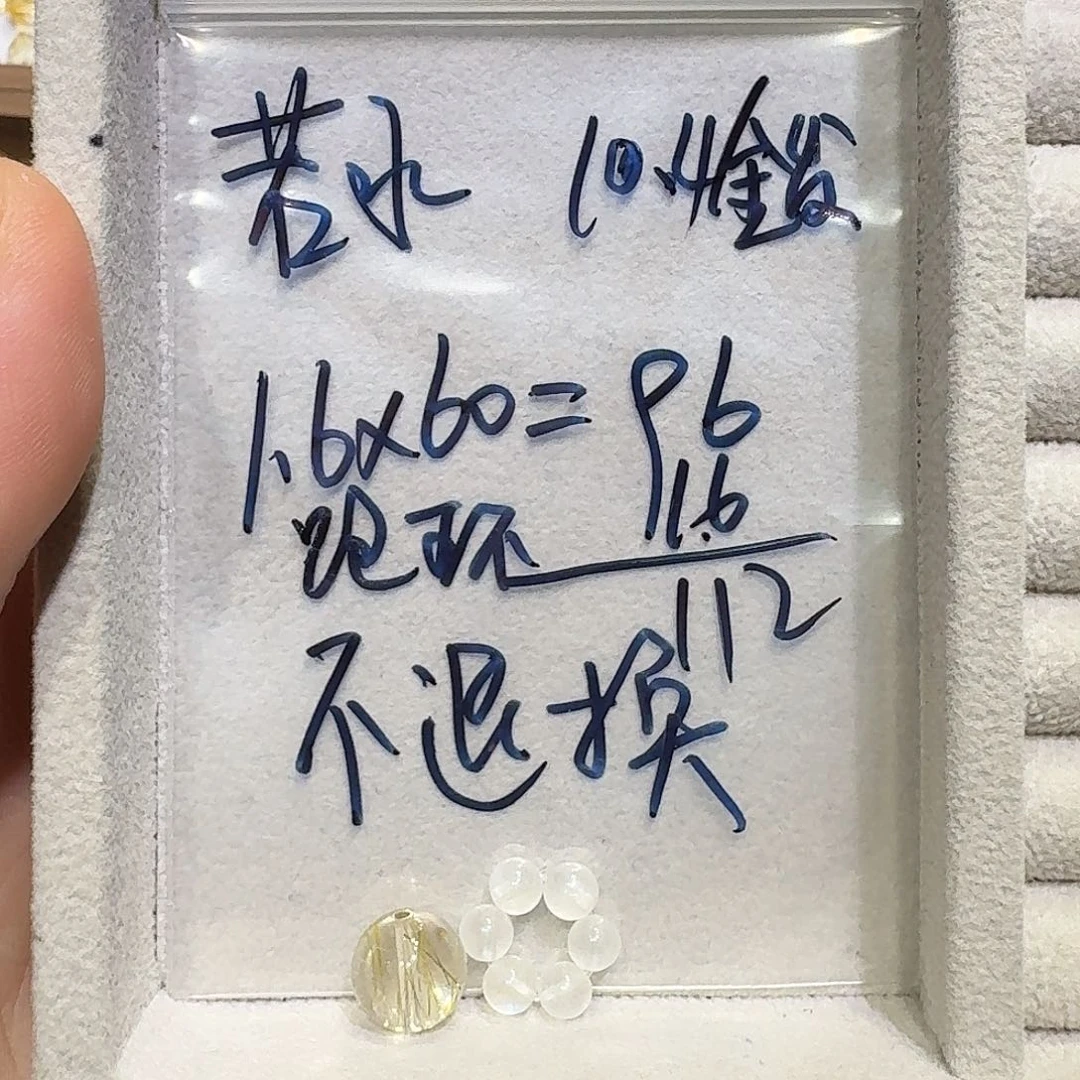 若水 10.4金发
1.6×60=96
跑环 16
112
不退换